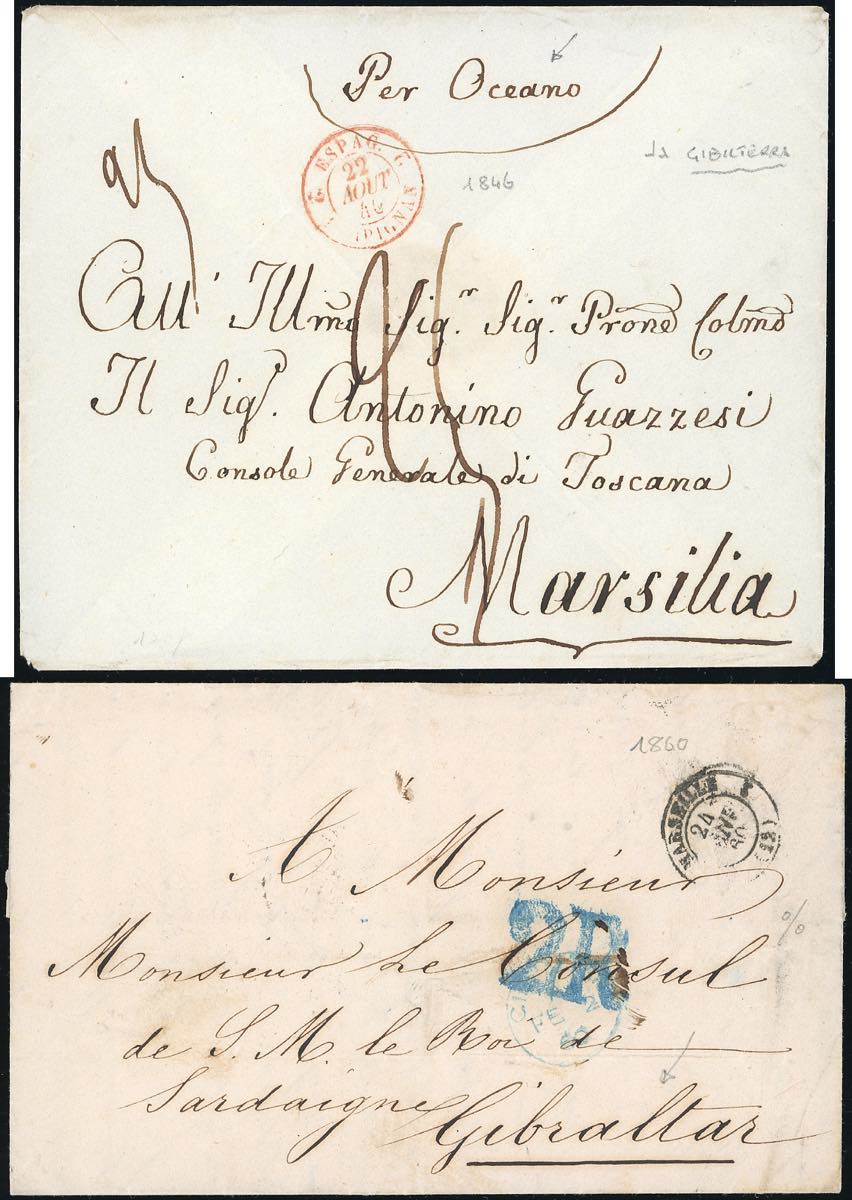 Per Oceano
da GIBILTERRA
ESPAG.
22
AOUT
46
PIGNAN
1846
All' Illmo Sig.r Sig.r Prone Colmo
Il Sig.r Antonino Guazzesi
Console Generale di Toscana
Marsilia
1860
MARSEILLE
24
(12)
A Monsieur
Monsieur Le Consul
2R
de S. M. le Roi de
Sardaigne
Gibraltar